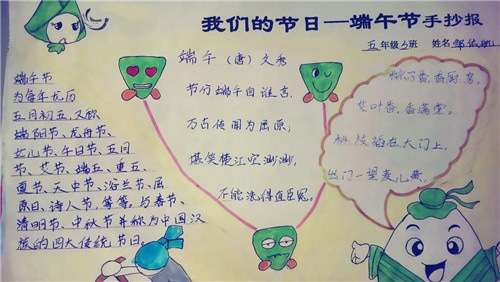 我们的节日—端午节手抄报
五年级3班 姓名
端午节
为每年农历
五月初五,又称
端阳节、龙舟节、
女儿节、午日节、五月
节、艾节、端五、重五、
夏节、天中节、浴兰节、屈
原日、诗人节,等等。与春节、
清明节、中秋节并称为中国汉
族的四大传统节日。
端午(唐)文秀
节分端午自谁言,
万古传闻为屈原;
堪笑楚江空渺渺,
不能洗得直臣冤。
粽子香,香厨房,
艾叶香,香满堂,
桃枝插在大门上,
出门一望麦儿黄。